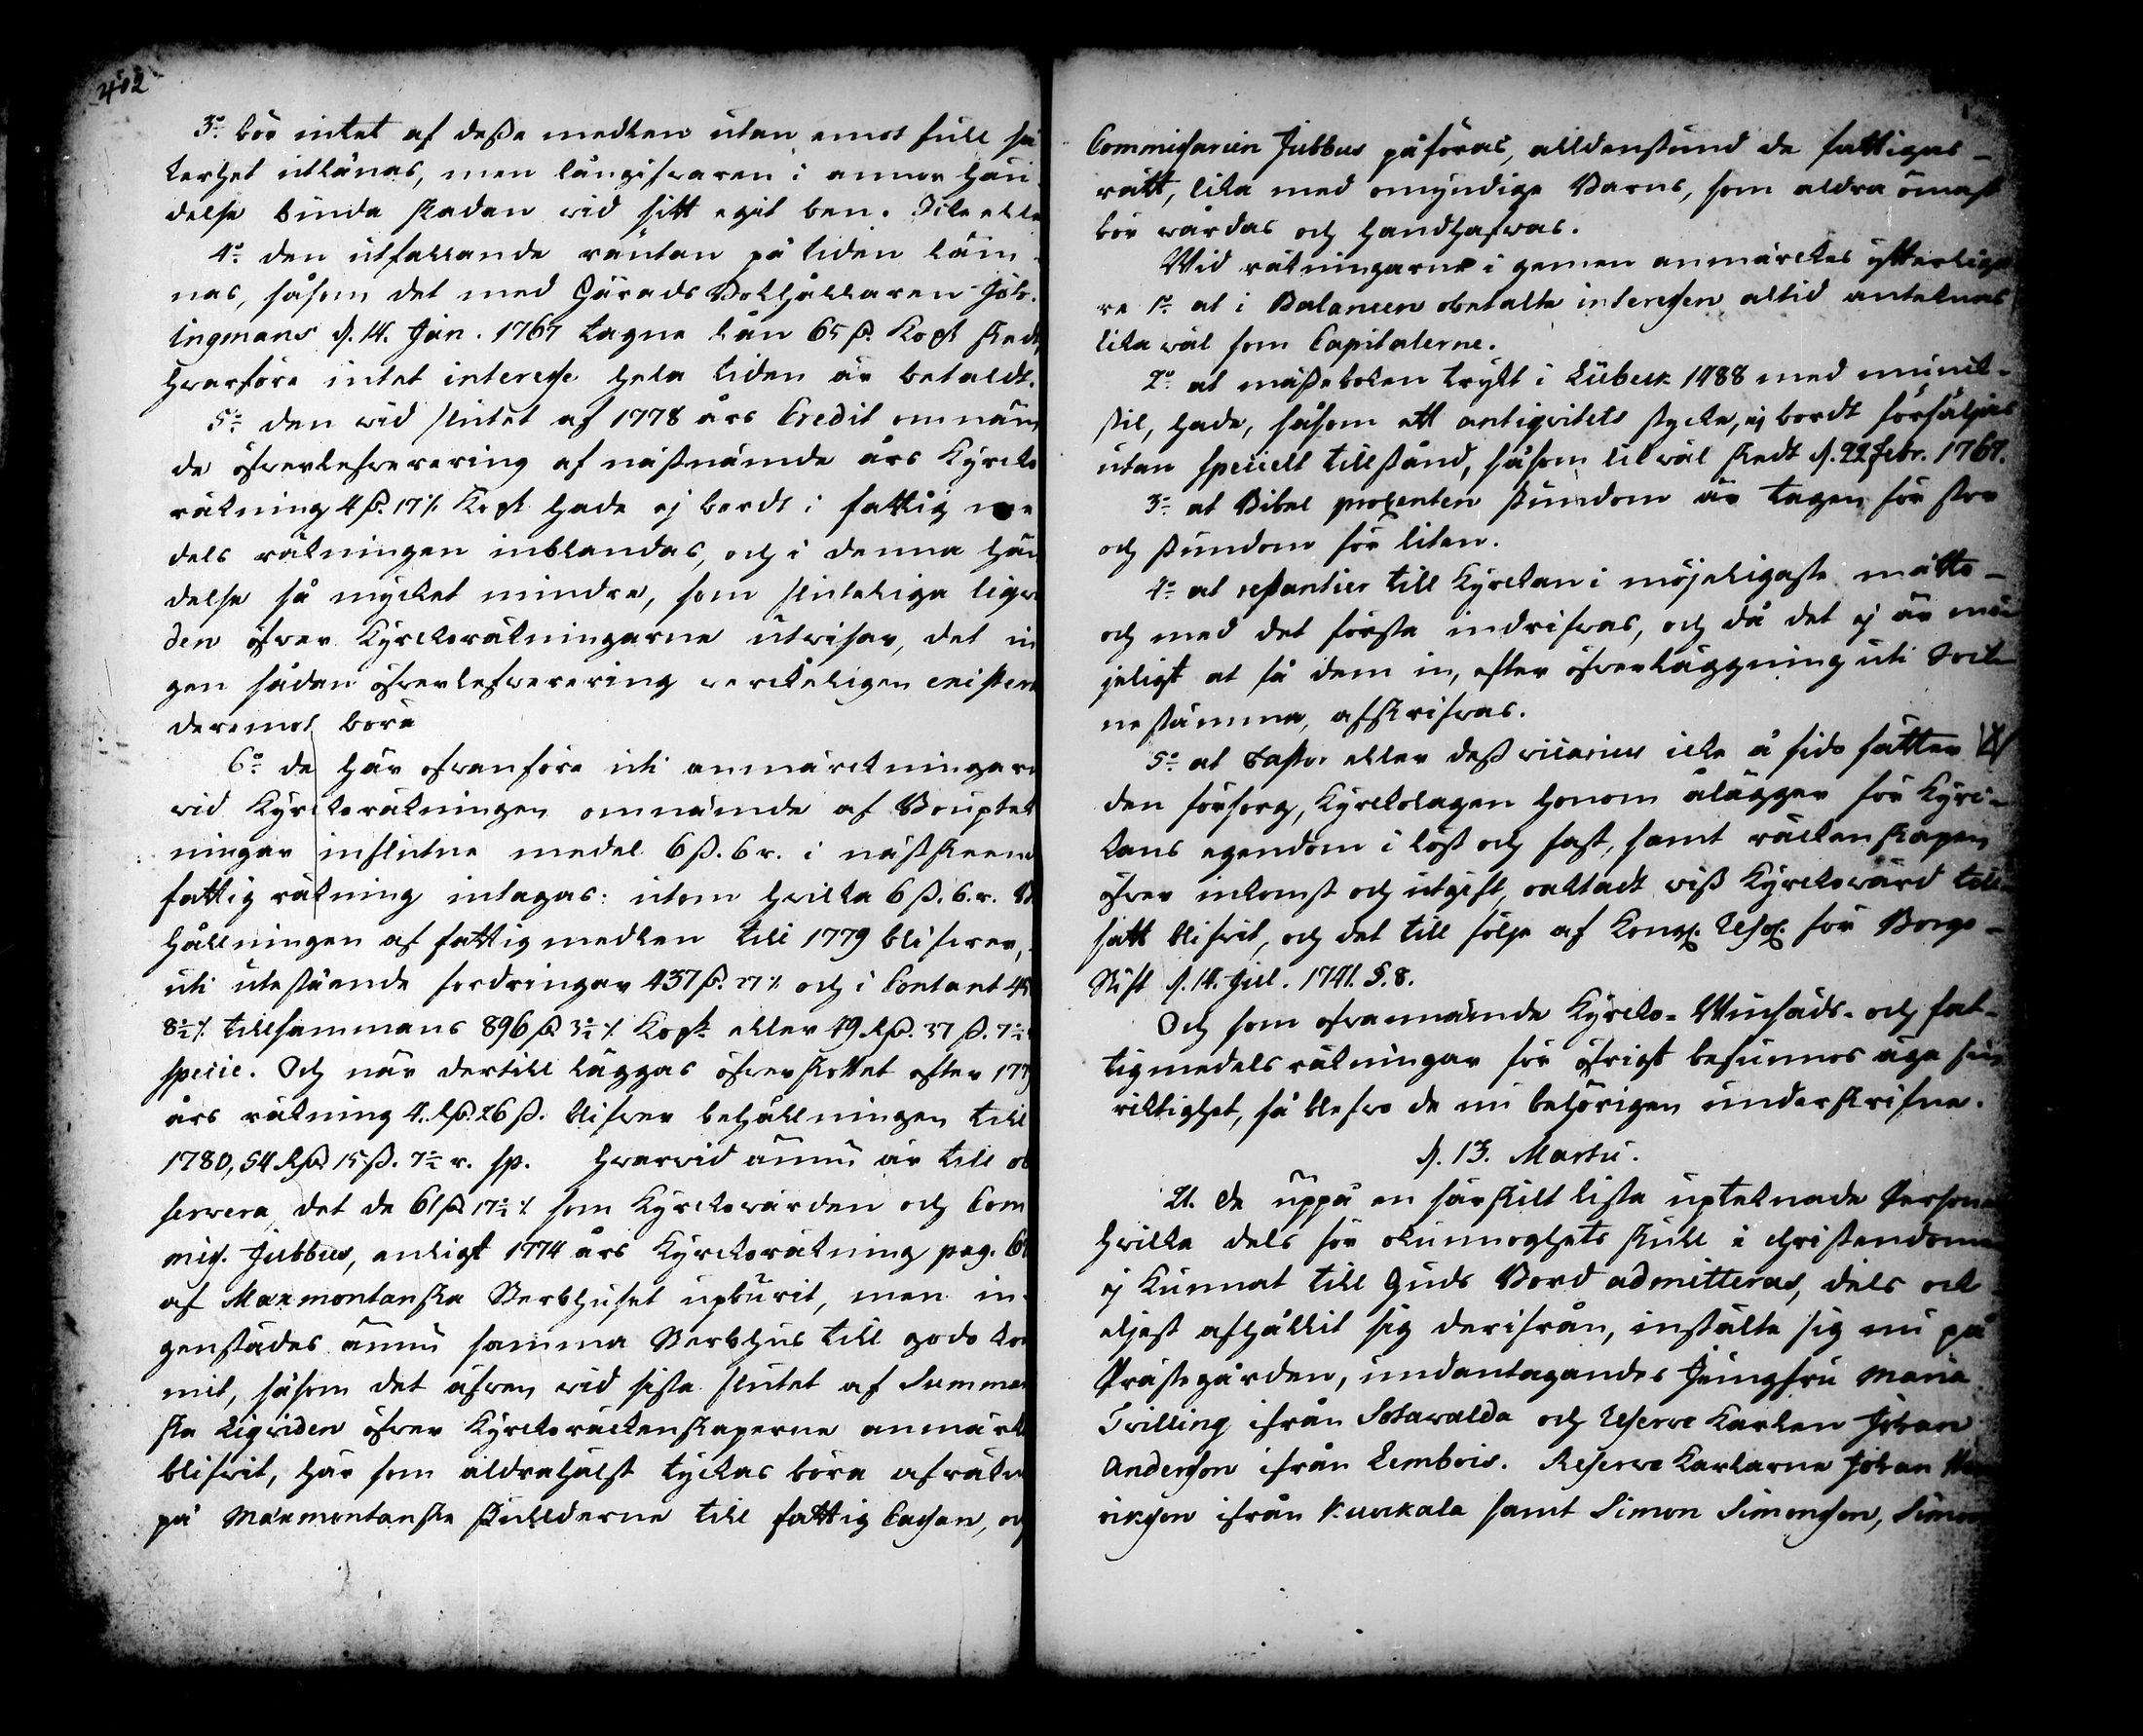 402
3:o bör intet af deße medlen utan emot full sä
kerhet utlånas, men långifvaren i annor hän-
delse binda skadan wid sitt egit ben. Icke eller
4:o den utfallande räntan på tiden läm-
nas, såsom det med Härads Bokhållaren Joh.
Ingmans d. 14. Jan. 1767 tagne lån 65 ß. Kopt skedt,
hwarföre intet interesse hela tiden är betaldt.
5:o den wid slutet af 1778 års Credit omnäm
de öfverlefwerering af näßnämde års Kyrcko
räkning 4 ß. 17 /. Kopt hade ej bordt i fattig me
dels räkningen inblandas, och i denna hän
delse så mycket mindre, som sluteliga liqwi
den öfwer Kyrckoräkningarne utwisar, det in
gen sådan öfwerlefwerering werckeligen existerat
deremot böra
6:o de här ofwanföre uti anmärckningarne
wid Kyrckoräkningen omnämde af Bouptek
ningar influtne medel 6 ß. 6 r. i näßtskeend
fattig räkning intagas: utom hwilka 6 ß. 6. r. Be
hållningen af fattigmedlen till 1779 blifwer,
uti utestående fordringar 437 ß. 27 /. och i Contant 45
8 1/2 /. tillsammans 896 ß 3 1/2 /. Kopt eller 49 Rß. 37 ß. 7 1/2
specie. Och när dertill läggas öfwerskottet efter 177
års räkning 4. Rß. 26 ß. blifwer behållningen till
1780, 54 Rß 15 ß. 7 1/2 r. sp. Hwarwid ännu är till ob
servera, det de 61 ß 17 1/2 /. som Kyrckowärden och Com
miss. Jubbus, enligt 1774 års Kyrckoräkning pag. 61
af Marmontanska Sterbhuset upburit, men in-
genstädes ännu samma Sterbhus till godo kom
mit, såsom det äfwen wid sista slutet af Summar
ska Liqwiden öfwer Kyrckoräckenskaperne anmärkt
blifwit, här som aldrahälst tyckas böra afräkn
på Marmontanska skullderne till fattig Cassan, och
Commissarien Jubbus påföras, alldenstund de fattigas
rätt, lika med omyndige Barns, som aldra ömast
bör wårdas och handhafwas.
Wid räkningarne i gemen anmärckes ytterliga
re 1:o at i Balancen obetalte interessen altid anteknas
lika wäl som Capitalerne.
2:o at mäßeboken tryckt i Lübeck 1488 med munck-
stil, hade, såsom ett antiqvitets stycke, ej bordt försäljas
utan speciellt tillstånd, såsom likwäl skedt d. 22 Febr. 1767.
3:o at Bibel procenten stundom är tagen för stor
och stundom för liten.
4:o at restantier till Kyrckan i möjeligaste måtto
och med det första indrifwas, och då det ej är mö
jeligt at få dem in, efter öfwerläggning uti Socke
nestämma, afskrifwas.
5:o at Pastor eller deß vicarius icke å sido sätter
den försorg, Kyrckolagen honom ålägger för Kyrc-
kans egendom i löst och fast, samt räckenskapen
öfwer inkomst och utgift, oaktadt wiß Kyrckowärd till
satt blifwit, och det till följe af Kongl. Resol. för Borgo
Stift d. 14. Jul. 1741. §. 8.
Och som ofwannämde Kyrcko- Winsäds- och fat-
tigmedels räkningar för öfrigt befunnos äga sin
riktighet, så blefwo de nu behörigen underskrifne.
d. 13. Martii.
St. De uppå en särskilt lista upteknade Persone
hwilka dels för okunnoghets skull i christendomen
ej kunnat till Guds Bord admitteras, dels ock
eljest afhållit sig derifrån, instälte sig nu på
Prästegården, undantagandes Jungfru Maria
Trilling ifrån Sotawalda och Reserve Karlen Johan
Andersson ifrån Lembois. Reserve Karlarne Johan Hen
ricsson ifrån Kurkala samt Simon Simonsson, Simon